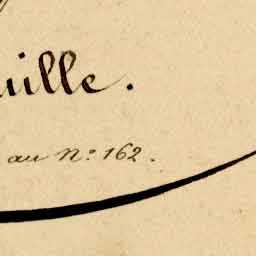 uille.
au N.° 162.